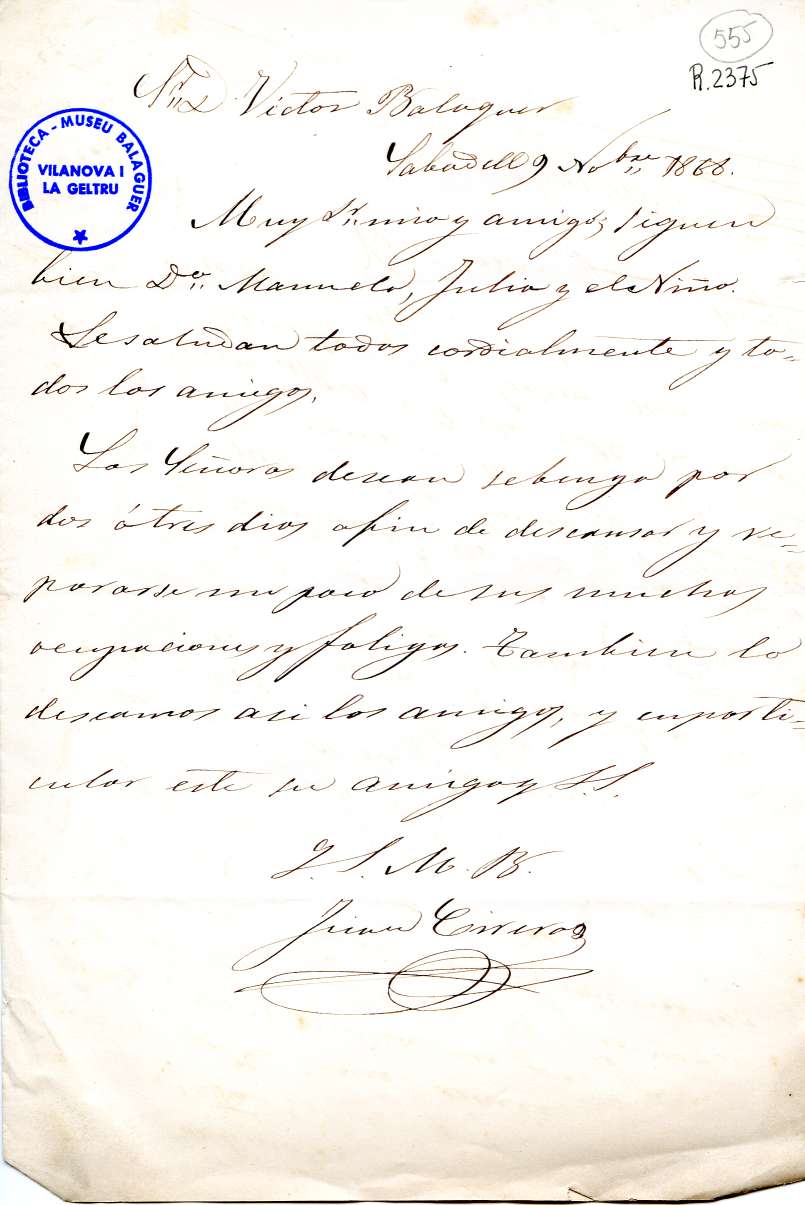 555
R.2375
BIBLIOTECA - MUSEU BALAGUER
VILANOVA I
LA GELTRU
Sr. D. Victor Balaguer
Sabadell 9 Nobre 1868.
Muy Sr. mio y amigo; siguen
bien Da. Manuela, Julia y el Niño.
Le saludan todos cordialmente y to-
dos los amigos.
Las Señoras desean se benga por
dos ó tres dias afin de descansar y re-
pararse un poco de sus muchas
ocupaciones y fatigas. Tambien lo
deseamos asi los amigos, y en parti-
cular este su amigo y S.S.
Q. S. M. B.
Juan Cirera